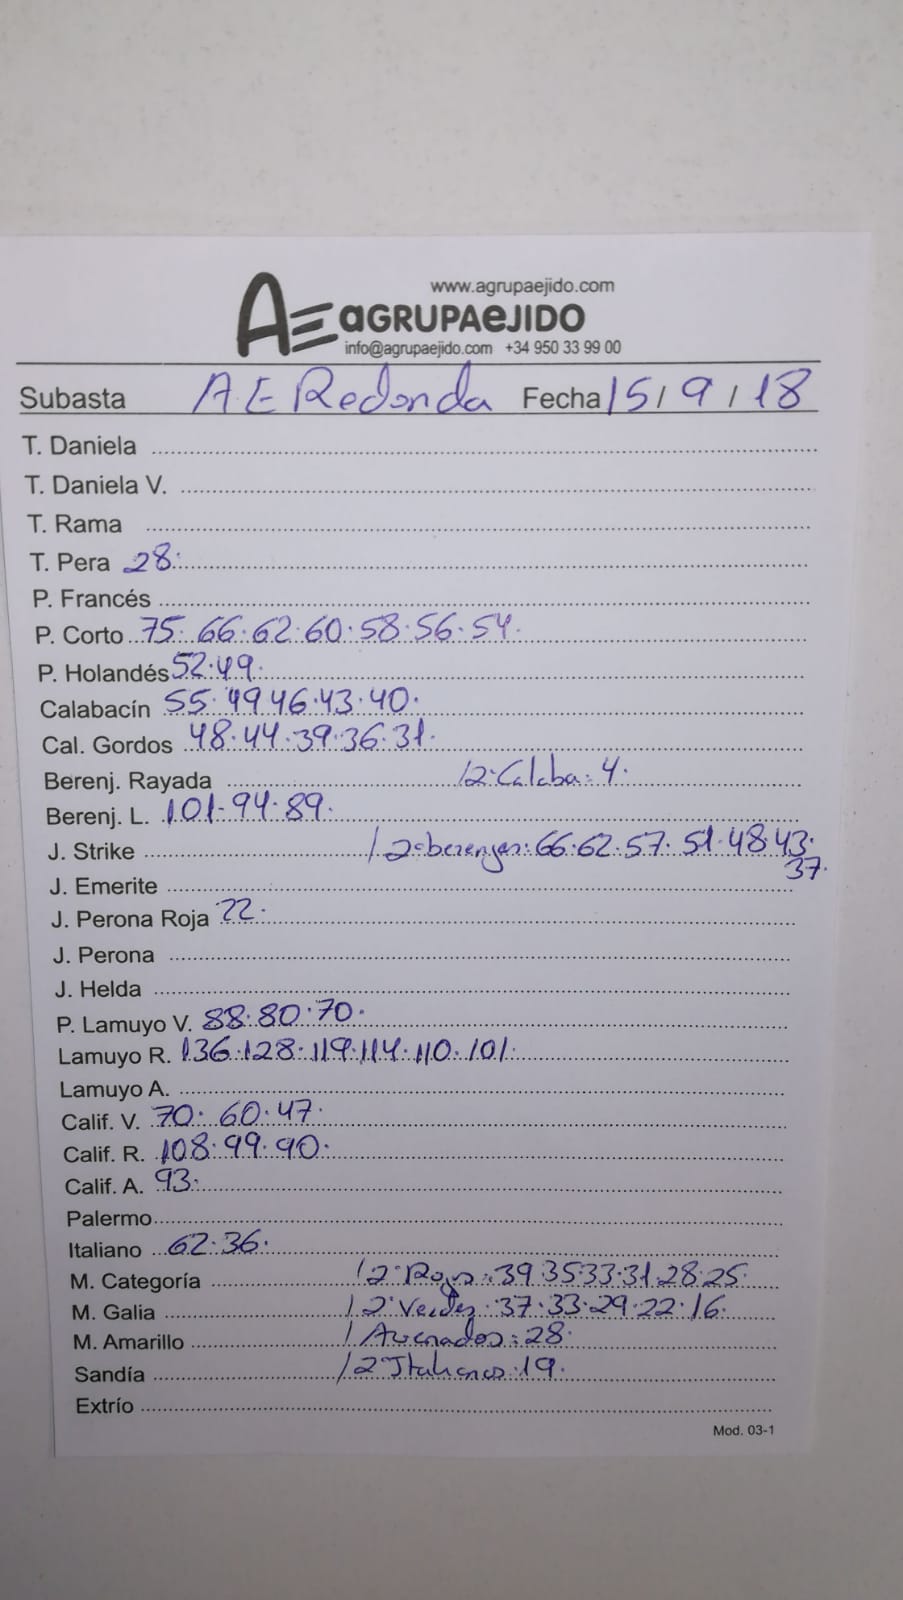 www.agrupaejido.com
AE aGRUPAeJIDO
info@agrupaejido.com +34 950 33 99 00
Subasta AE Redonda Fecha 15/9/18
T. Daniela
T. Daniela V.
T. Rama
T. Pera 28.
P. Francés
P. Corto 75. 66. 62. 60. 58. 56. 54.
P. Holandés 52. 49.
Calabacín 55. 49 46. 43. 40.
Cal. Gordos 48. 44. 39. 36. 31.
Berenj. Rayada / 2ª Calaba: 4.
Berenj. L. 101. 94. 89.
J. Strike / 2ª berenjen: 66. 62. 57. 51. 48. 43.
37.
J. Emerite
J. Perona Roja 22.
J. Perona
J. Helda
P. Lamuyo V. 88. 80. 70.
Lamuyo R. 136. 128. 119. 114. 110. 101.
Lamuyo A.
Calif. V. 70. 60. 47.
Calif. R. 108. 99. 90.
Calif. A. 93.
Palermo
Italiano 62. 36.
M. Categoría / 2ª Rojos: 39 35. 33. 31. 28. 25.
M. Galia / 2ª Verdes: 37. 33. 29. 22. 16.
M. Amarillo / Asurcados: 28.
Sandía / 2ª Italianos: 19.
Extrío
Mod. 03-1